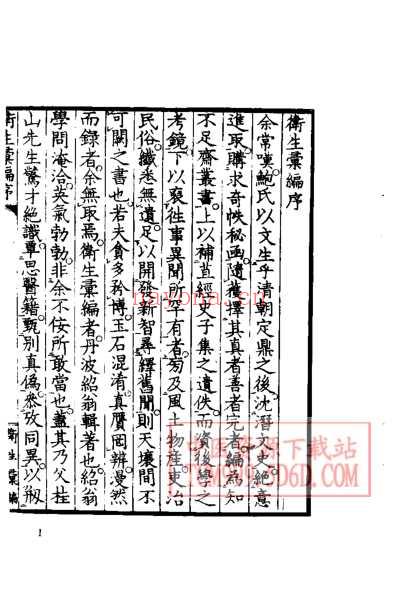 衛生彙編序
余常嘆鮑氏以文生乎清朝定鼎之後沈潛文史絕意
進取購求奇帙秘函隨獲擇其真者善者完者編為知
不足齋叢書上以補苴經史子集之遺佚而資後學之
考鏡下以裒徃事異聞所罕有者旁及風土物產吏治
民俗纖悉無遺足以開發新智尋繹舊聞則天壤間不
可闕之書也若夫貪多矜博玉石混淆真贋罔辨漫然
而錄者余無取焉衛生彙編者丹波紹翁輯著也紹翁
學問淹洽英氣勃勃非余不佞所敢當也蓋其乃父桂
山先生驚才絕識覃思醫籍甄別真偽叅攷同異以
衛生彙編序
衛生彙編
1
nayona.cn